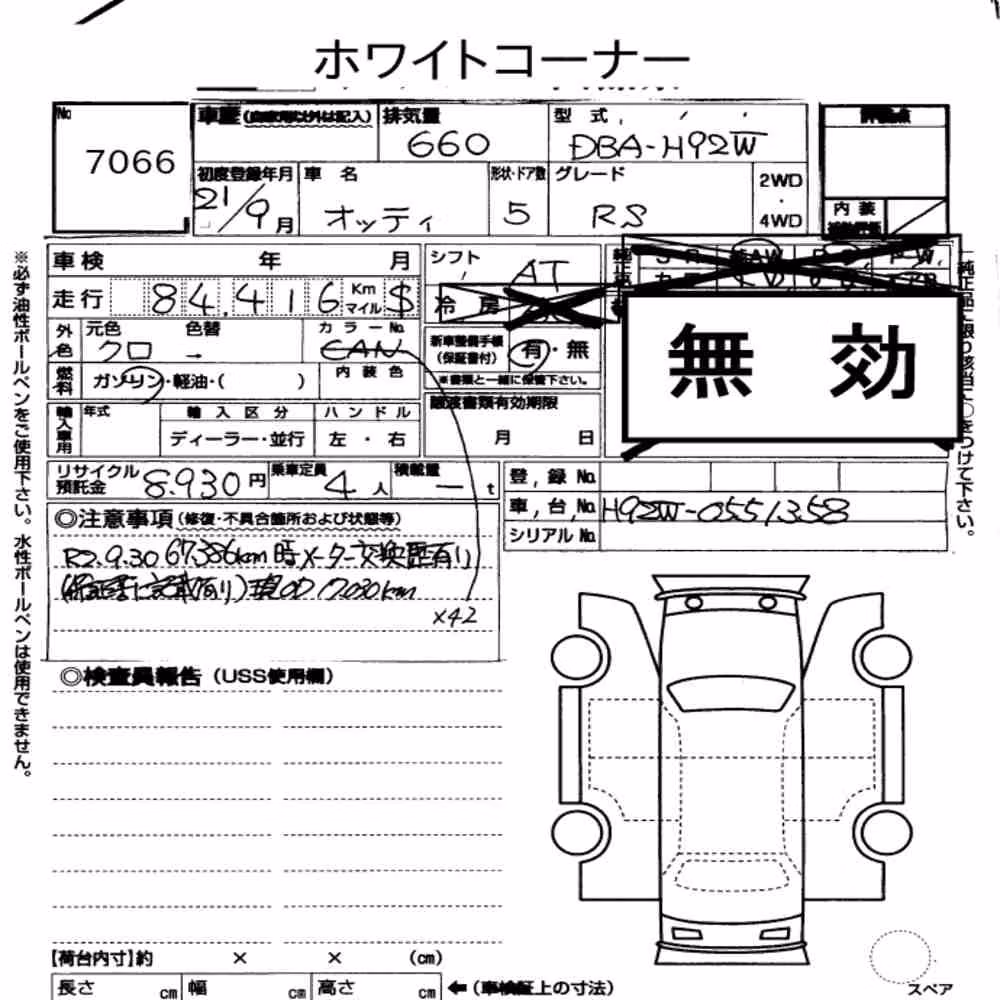 ホワイトコーナー
No
7066
車歴（自家用以外は記入）
排気量
660
型式
DBA-H92W
初度登録年月
21/9月
車名
オッティ
形状・ドア数
5
グレード
RS
2WD
・
4WD
評価点
内装
車検 年 月
走行 84,416 Km マイル $
シフト
AT
冷房
外色
元色
クロ
色替
→
カラーNo.
CAN
内装色
燃料
ガソリン・軽油・( )
新車整備手帳
（保証書付）
有・無
※書類と一緒に保管下さい。
輸入車用
年式
輸入区分
ディーラー・並行
ハンドル
左・右
譲渡書類有効期限
月 日
無効
リサイクル預託金 8.930円
乗車定員 4人
積載量 ー t
登録No.
車台No. H92W-0551358
シリアルNo.
◎注意事項（修復・不具合箇所および状態等）
R2.9.30 67,386km時メーター交換歴有り
(保証書に記載有り)現OD 17030km
×42
◎検査員報告（USS使用欄）
【荷台内寸】約 × × (cm)
長さ cm 幅 cm 高さ cm ←（車検証上の寸法）
スペア
※必ず油性ボールペンをご使用下さい。水性ボールペンは使用できません。
純正品に限り該当に○をつけて下さい。